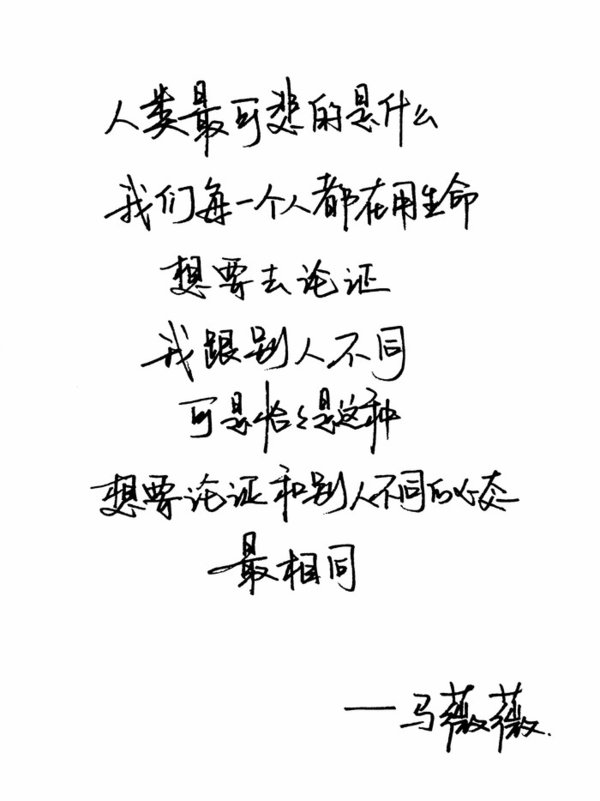 人类最可悲的是什么
我们每一个人都在用生命
想要去论证
我跟别人不同
可是恰恰是这种
想要论证和别人不同的心态
最相同
——马薇薇.